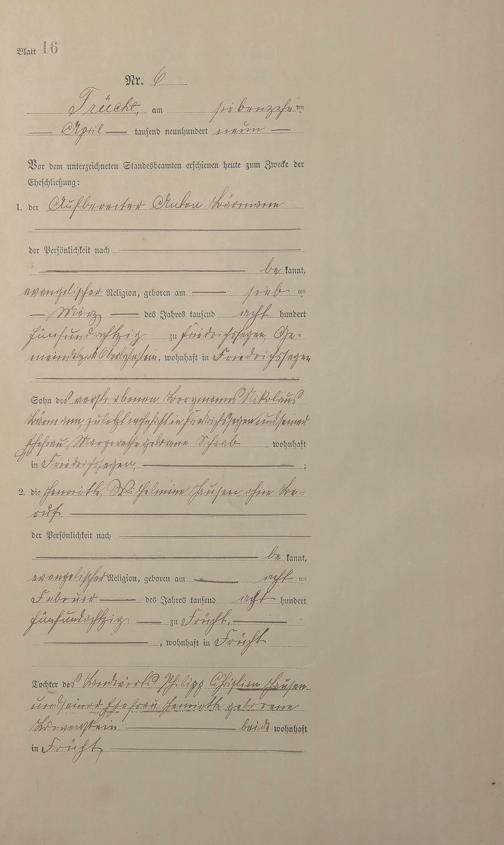 Blatt 16
Nr. 6
Frücht, am siebenzehnten
April tausend neunhundert neun
Vor dem unterzeichneten Standesbeamten erschienen heute zum Zwecke der
Eheschließung:
1. der Aufbereiter Anton
der Persönlichkeit nach
be kannt,
evangelischer Religion, geboren am
März des Jahrs tausend acht hundert
fünfundachtzig zu Friedrichssegen Ge-
, wohnhaft in Friedrichssegen
Sohn des verstorbenen Bergmanns Nikolaus
zuletzt wohnhaft in Friedrichssegen und seiner
Ehefrau geborene wohnhaft
in Friedrichssegen, ;
2. die Henriette Wilhelmine ohne Be-
ruf
der Persönlichkeit nach
be kannt,
evangelischer Religion, geboren am acht ten
Februar des Jahrs tausend acht hundert
fünfundachtzig zu Frücht,
, wohnhaft in Frücht
Tochter des Landwirts Philipp Christian
und seiner Ehefrau Henriette geborene
beide wohnhaft
in Frücht